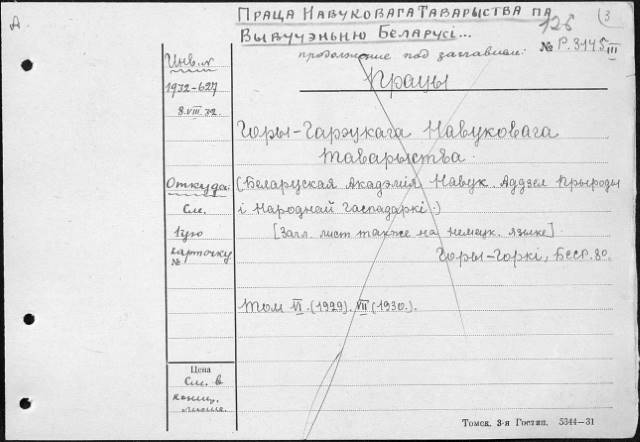 Д
Праца Навуковага Таварыства па
Вывучэньню Беларусі...
126
(3
продолжение под заглавием:
№ Р.3145 III
Працы
Инв. №
1932-627
8.VIII.32.
Горы-Гарэцкага Навуковага
Таварыства.
Откуда:
(Беларуская Акадэмія Навук. Аддзел Прыроды
См.
і Народнай Гаспадаркі.)
1ую
[Загл. лист также на немецк. языке]
карточку
№
Горы-Горкі, Бсср.
Том VI.(1929). VII(1930).
Цена
См. в
Томск. 3-я Гостип. 5344—31